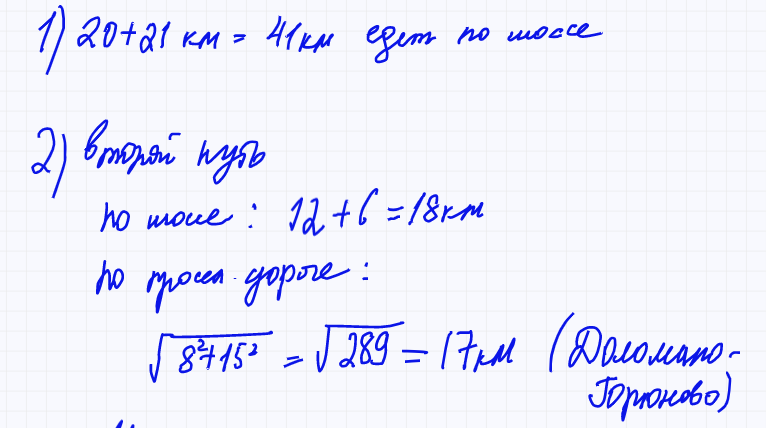 1) 20+21 км = 41 км едет по шоссе
2) второй путь
по шоссе: 12+6=18км
по просел. дороге:
√8²+15² = √289 = 17 км (Доломано-
Горюново)